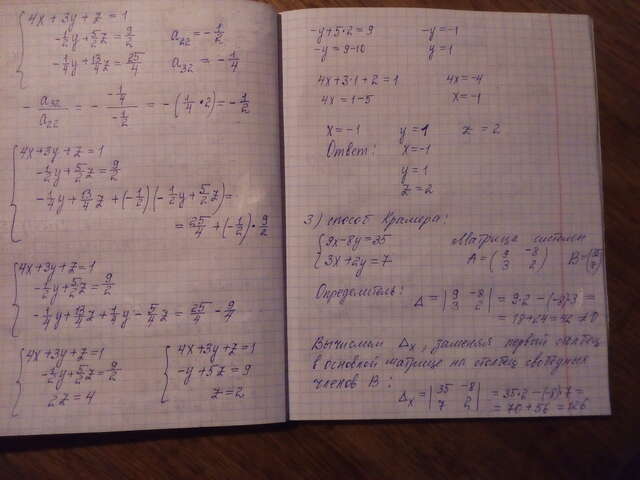 4x + 3y + z = 1
-1/2y + 5/2z = 9/2    a₂₂ = -1/2
-1/4y + 13/4z = 25/4    a₃₂ = -1/4
- a₃₂/a₂₂ = - (-1/4)/(-1/2) = -(1/4 · 2) = -1/2
4x + 3y + z = 1
-1/2y + 5/2z = 9/2
-1/4y + 13/4z + (-1/2)(-1/2y + 5/2z) =
= 25/4 + (-1/2) · 9/2
4x + 3y + z = 1
-1/2y + 5/2z = 9/2
-1/4y + 13/4z + 1/4y - 5/4z = 25/4 - 9/4
4x + 3y + z = 1    4x + 3y + z = 1
-1/2y + 5/2z = 9/2    -y + 5z = 9
2z = 4    z = 2
-y + 5·2 = 9    -y = -1
-y = 9 - 10    y = 1
4x + 3·1 + 2 = 1    4x = -4
4x = 1 - 5    x = -1
x = -1    y = 1    z = 2
Ответ: x = -1
y = 1
z = 2
3) способ Крамера:
9x - 8y = 35    Матрица системы
3x + 2y = 7    A = (9 -8 3 2)    B = (35 7)
Определитель: Δ = |9 -8 3 2| = 9·2 - (-8)·3 =
= 18 + 24 = 42 ≠ 0
Вычислим Δx, заменяя первый столбец
в основной матрице на столбец свободных
членов B:
Δx = |35 -8 7 2| = 35·2 - (-8)·7 =
= 70 + 56 = 126